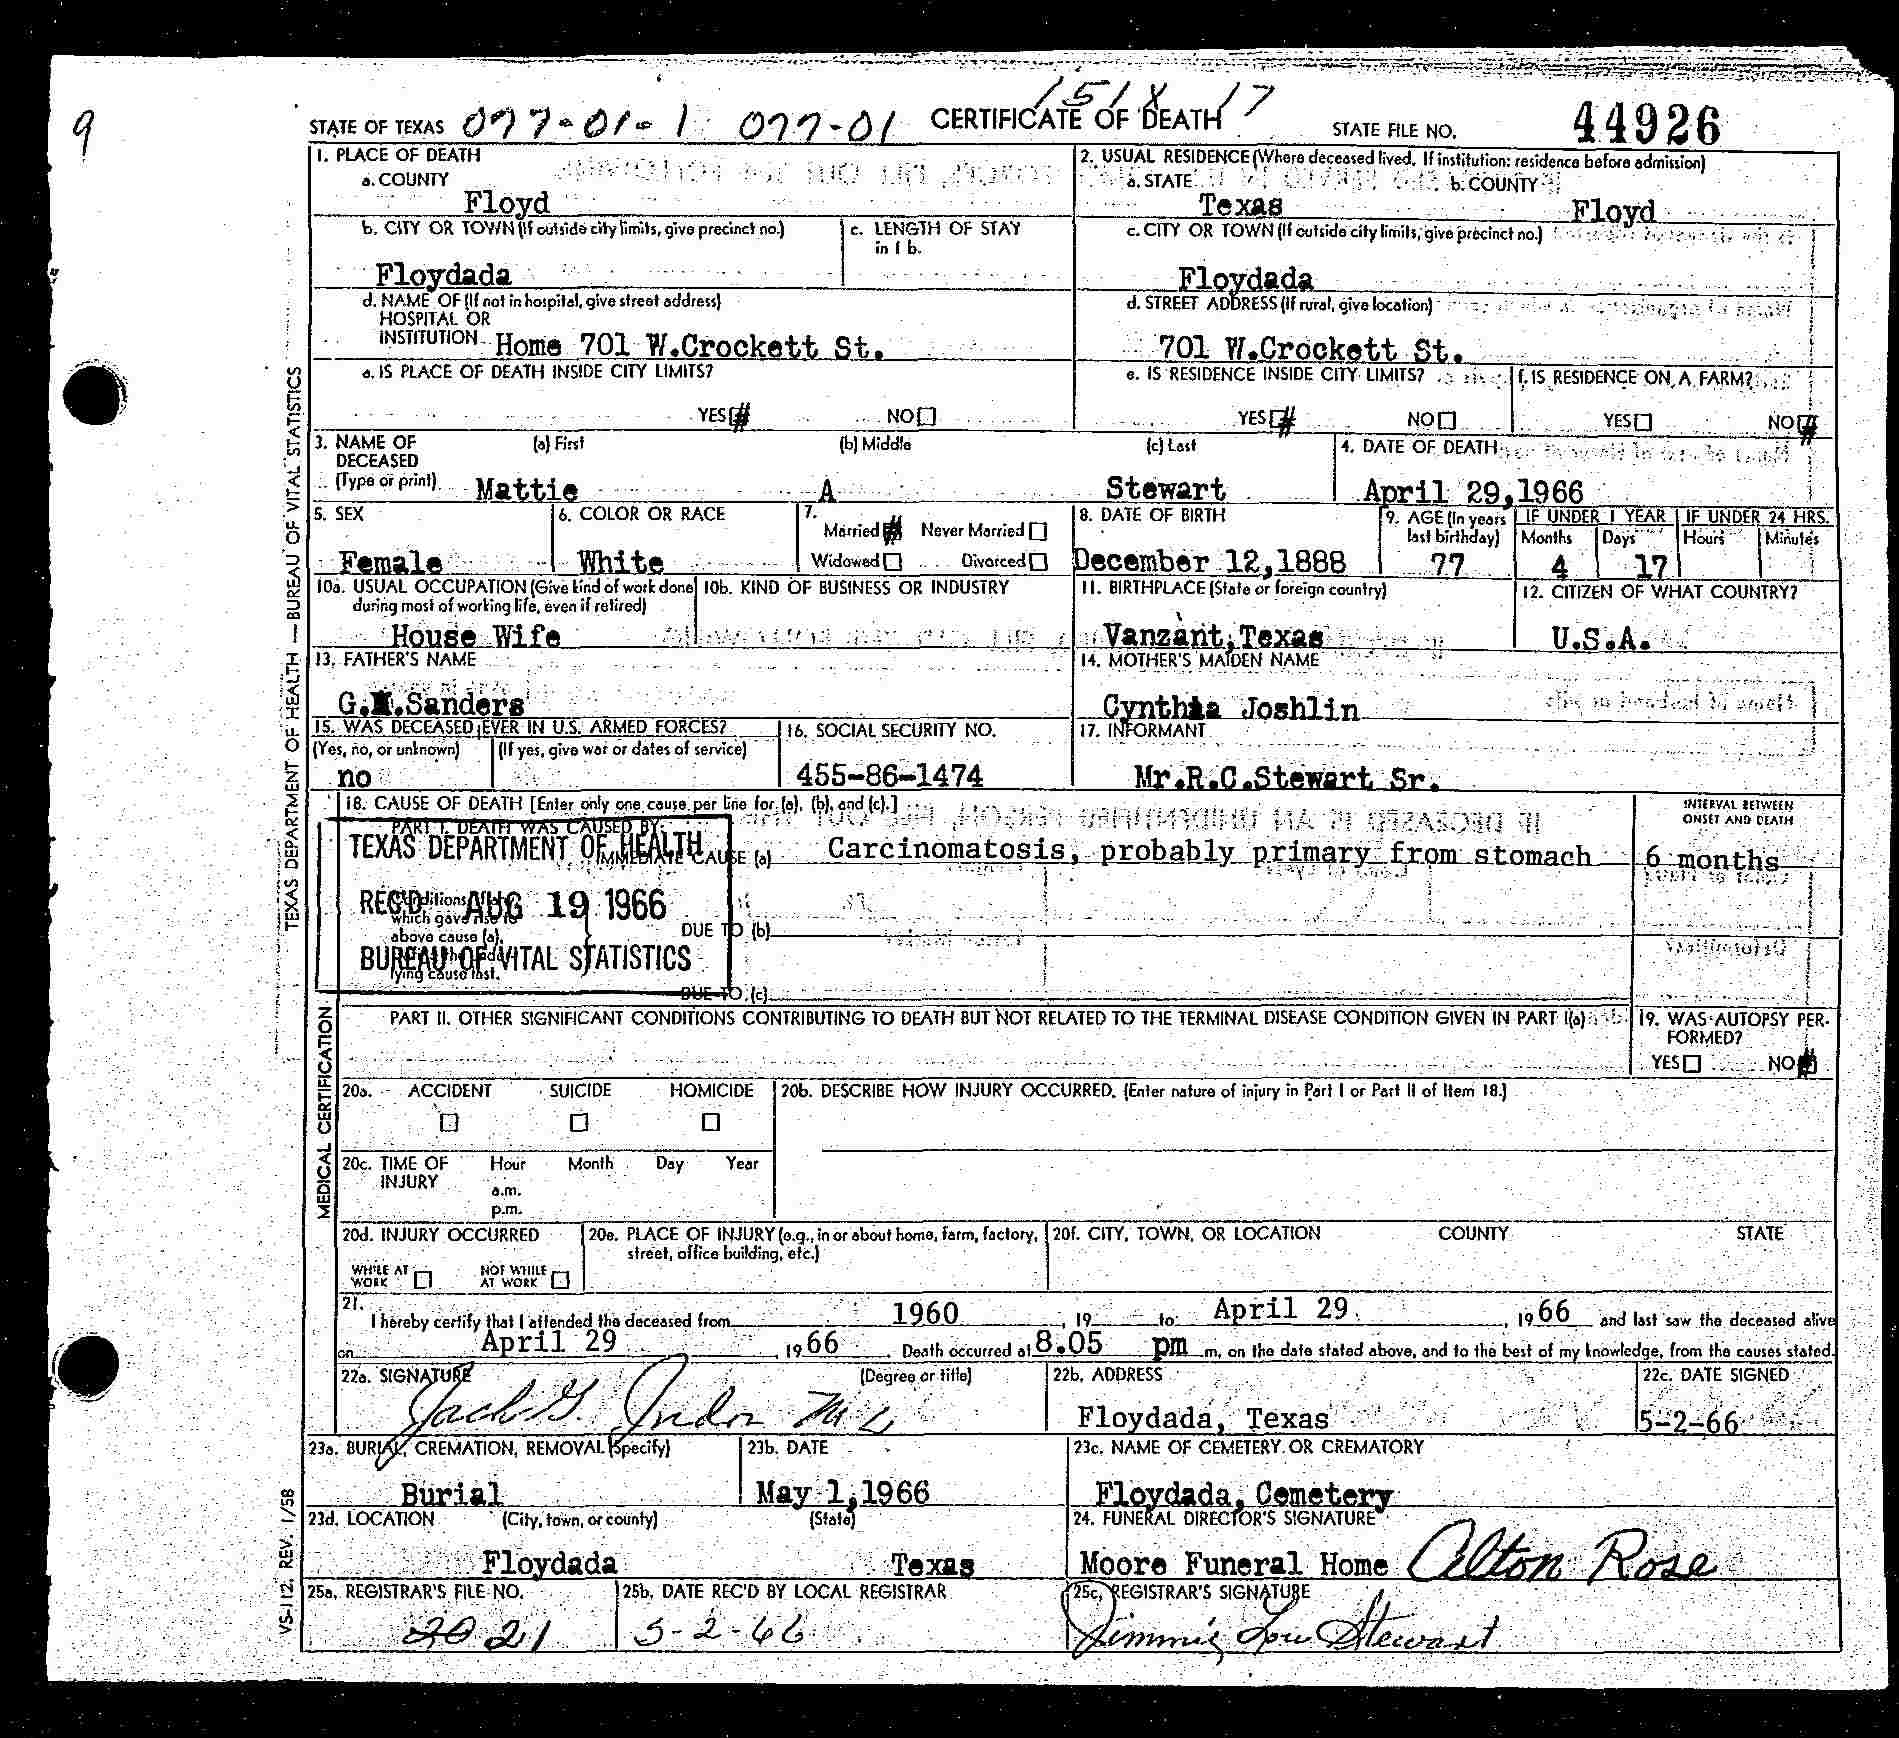 9
1518 17
STATE OF TEXAS 077-01-1 077-01 CERTIFICATE OF DEATH STATE FILE NO. 44926
1. PLACE OF DEATH
a. COUNTY
Floyd
2. USUAL RESIDENCE (Where deceased lived, If institution: residence before admission)
a. STATE b. COUNTY
Texas Floyd
b. CITY OR TOWN (If outside city limits, give precinct no.)
Floydada
c. LENGTH OF STAY
in 1 b.
c. CITY OR TOWN (If outside city limits, give precinct no.)
Floydada
d. NAME OF (If not in hospital, give street address)
HOSPITAL OR
INSTITUTION Home 701 W.Crockett St.
d. STREET ADDRESS (If rural, give location)
701 W.Crockett St.
e. IS PLACE OF DEATH INSIDE CITY LIMITS?
YES NO
e. IS RESIDENCE INSIDE CITY LIMITS?
YES NO
f. IS RESIDENCE ON A FARM?
YES NO
3. NAME OF (a) First (b) Middle (c) Last
DECEASED
(Type or print) Mattie A Stewart
4. DATE OF DEATH
April 29,1966
5. SEX
Female
6. COLOR OR RACE
White
7.
Married Never Married
Widowed Divorced
8. DATE OF BIRTH
December 12,1888
9. AGE (In years
last birthday)
77
IF UNDER 1 YEAR
Months Days
4 17
IF UNDER 24 HRS.
Hours Minutes
10a. USUAL OCCUPATION (Give kind of work done
during most of working life, even if retired)
House Wife
10b. KIND OF BUSINESS OR INDUSTRY
11. BIRTHPLACE (State or foreign country)
Vanzant,Texas
12. CITIZEN OF WHAT COUNTRY?
U.S.A.
13. FATHER'S NAME
G.M.Sanders
14. MOTHER'S MAIDEN NAME
Cynthia Joshlin
15. WAS DECEASED EVER IN U.S. ARMED FORCES?
(Yes, no, or unknown) (If yes, give war or dates of service)
no
16. SOCIAL SECURITY NO.
455-86-1474
17. INFORMANT
Mr.R.C.Stewart Sr.
18. CAUSE OF DEATH [Enter only one cause per line for (a), (b), and (c).]
INTERVAL BETWEEN
ONSET AND DEATH
PART I. DEATH WAS CAUSED BY:
IMMEDIATE CAUSE (a) Carcinomatosis, probably primary from stomach 6 months
TEXAS DEPARTMENT OF HEALTH
REC'D AUG 19 1966
BUREAU OF VITAL STATISTICS
which gave rise to
above cause (a),
lying cause last.
DUE TO (b)
DUE TO (c)
PART II. OTHER SIGNIFICANT CONDITIONS CONTRIBUTING TO DEATH BUT NOT RELATED TO THE TERMINAL DISEASE CONDITION GIVEN IN PART I(a)
19. WAS AUTOPSY PER-
FORMED?
YES NO
20a. ACCIDENT SUICIDE HOMICIDE
20b. DESCRIBE HOW INJURY OCCURRED. (Enter nature of injury in Part I or Part II of Item 18.)
20c. TIME OF Hour Month Day Year
INJURY
a.m.
p.m.
20d. INJURY OCCURRED
WHILE AT NOT WHILE
WORK AT WORK
20e. PLACE OF INJURY (e.g., in or about home, farm, factory,
street, office building, etc.)
20f. CITY, TOWN, OR LOCATION COUNTY STATE
21.
I hereby certify that I attended the deceased from 1960, 19 to April 29. , 1966 and last saw the deceased alive
on April 29 1966. Death occurred at 8.05 pm m, on the date stated above, and to the best of my knowledge, from the causes stated.
22a. SIGNATURE (Degree or title)
Jack G. Jordan M.D.
22b. ADDRESS
Floydada, Texas
22c. DATE SIGNED
5-2-66
23a. BURIAL, CREMATION, REMOVAL (Specify)
Burial
23b. DATE
May 1,1966
23c. NAME OF CEMETERY OR CREMATORY
Floydada, Cemetery
23d. LOCATION (City, town, or county) (State)
Floydada Texas
24. FUNERAL DIRECTOR'S SIGNATURE
Moore Funeral Home Alton Rose
25a. REGISTRAR'S FILE NO.
20 21
25b. DATE REC'D BY LOCAL REGISTRAR
5-2-66
25c. REGISTRAR'S SIGNATURE
Jimmie Lou Stewart
TEXAS DEPARTMENT OF HEALTH — BUREAU OF VITAL STATISTICS
MEDICAL CERTIFICATION
VS-112, REV. 1/58